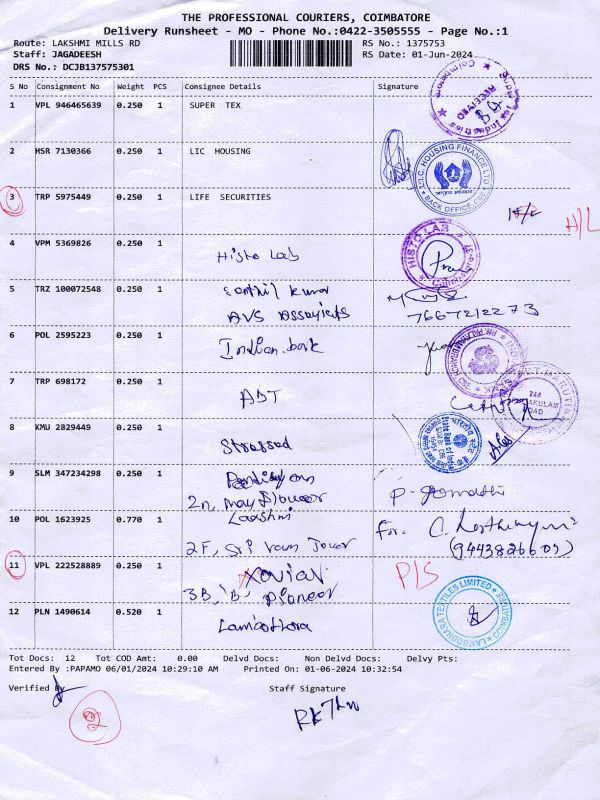 THE PROFESSIONAL COURIERS, COIMBATORE
Delivery Runsheet - MO - Phone No.:0422-3505555 - Page No.:1
Route: LAKSHMI MILLS RD RS No.: 1375753
Staff: JAGADEESH RS Date: 01-Jun-2024
DRS No.: DCJB137575301
S No Consignment No Weight PCS Consignee Details Signature
1 VPL 946465639 0.250 1 SUPER TEX
RECEIVED
2 HSR 7130366 0.250 1 LIC HOUSING
L.I.C. HOUSING FINANCE LTD
BACK OFFICE, CBE
3 TRP 5975449 0.250 1 LIFE SECURITIES
H/L
4 VPM 5369826 0.250 1 Histo Lab
HISTO LAB
5 TRZ 100072548 0.250 1 Senthil Kumar
AVS
7667212273
6 POL 2595223 0.250 1 Indian bank
7 TRP 698172 0.250 1 ABT
8 KMU 2829449 0.250 1 Stressed
State Bank of India
9 SLM 347234298 0.250 1
2n, May Flower
P. Gomathi
10 POL 1623925 0.770 1 Lakshmi
2F, Sri Ram Tower
for.
(9443826609)
11 VPL 222528889 0.250 1 Xavier
3B, 'B', Pioneer
P/S
12 PLN 1490614 0.520 1 Lambothara
LAMBODHARA TEXTILES LIMITED
COIMBATORE
Tot Docs: 12 Tot COD Amt: 0.00 Delvd Docs: Non Delvd Docs: Delvy Pts:
Entered By :PAPAMO 06/01/2024 10:29:10 AM Printed On: 01-06-2024 10:32:54
Verified By Staff Signature
2